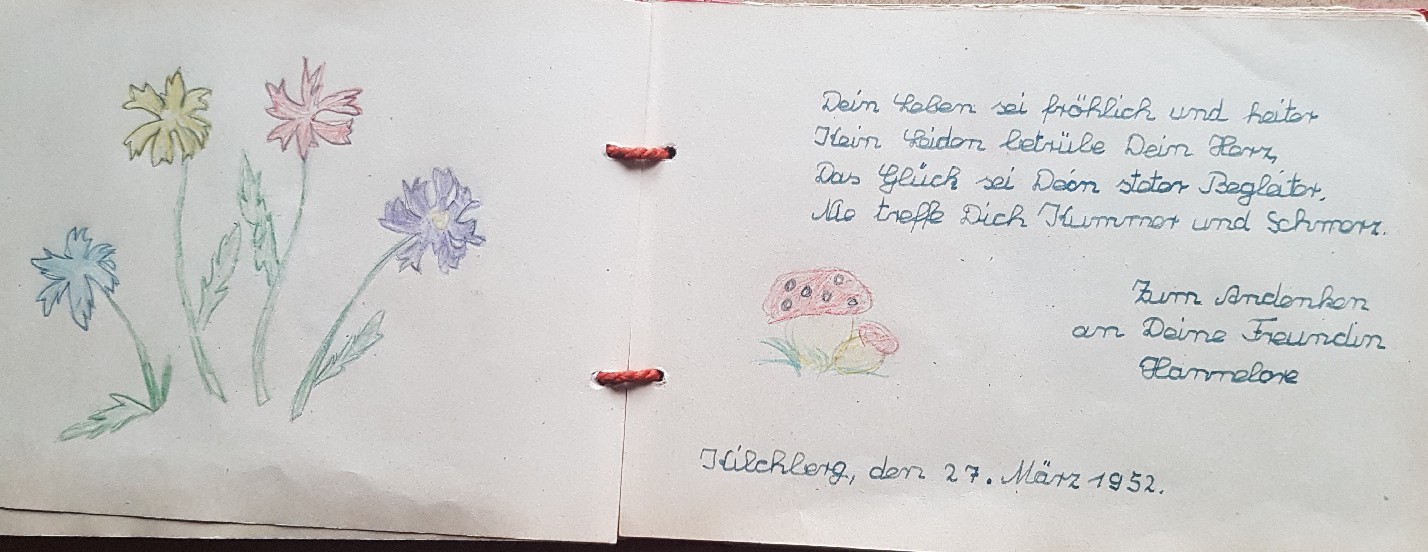 Dein Leben sei fröhlich und heiter
Kein Leiden betrübe Dein Herz,
Das Glück sei Dein steter Begleiter,
Nie treffe Dich Kummer und Schmerz.
Zum Andenken
an Deine Freundin
Hannelore
Kilchberg, den 27. März 1952.